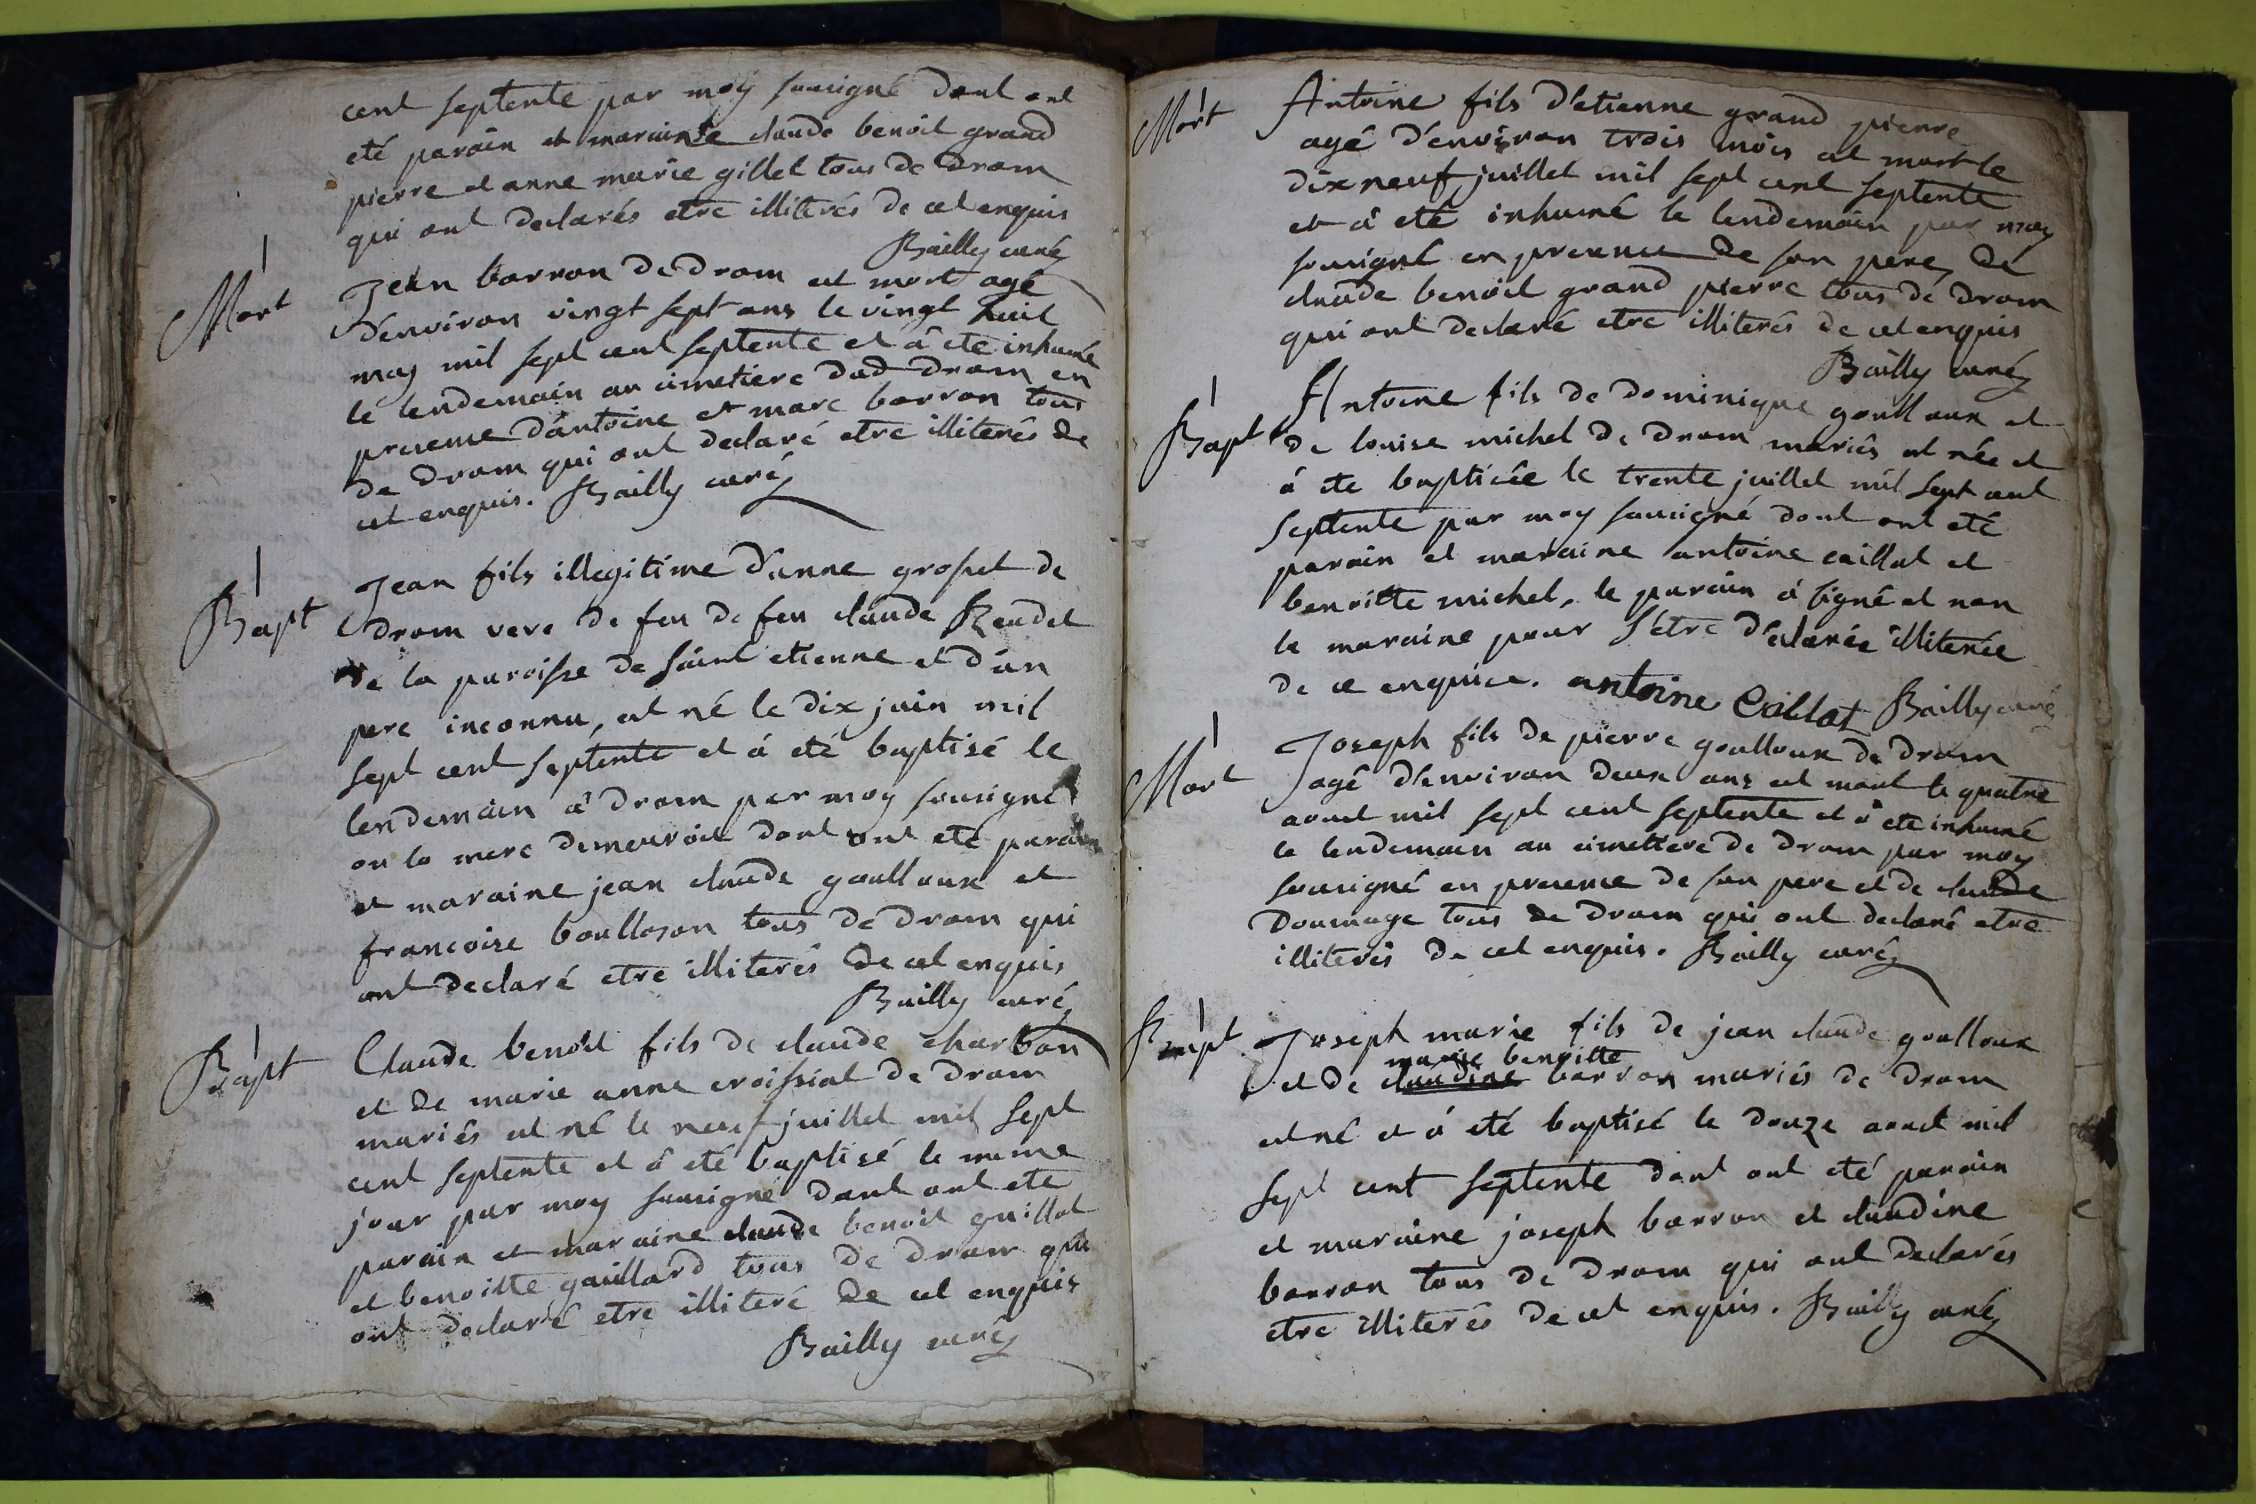 cent septente par moy sousigné dont ont
eté parain et maraine claude benoit grand
pierre et anne marie gillet tous de dram
qui ont declarés etre illiterés de cet enquis
Bailly curé
Mort
Jean barron de dram est mort agé
d'environ vingt sept ans le vingt huit
may mil sept cent septente et â ete inhumé
le lendemain au cimetiere dud dram en
presence d'antoine et marc barron tous
de dram qui ont declaré etre illiterés de
cet enquis. Bailly curé
Bapt
Jean fils illegitime d'anne grospet de
dram veve de feu de feu claude
de la paroisse de saint etienne et d'un
pere inconnu, est né le dix juin mil
sept cent septente et á eté baptisé le
lendemain â dram par moy sousigné
ou la mere demeuroit dont ont eté parain
et maraine jean claude goulloux et
francoise boulloson tous de dram qui
ont declaré etre illiterés de cet enquis
Bailly curé
Bapt
Claude benoit fils de claude charbon
et de marie anne croissiat de dram
mariés est né le neuf juillet mil sept
cent septente et â eté baptisé le meme
jour par moy sousigné dont ont ete
parain et maraine claude benoit guillot
et benoitte gaillard tous de dram qui
ont declaré etre illiteré de cet enquis
Bailly curé
Mort
Antoine fils d'etienne grand pierre
agé d'environ trois mois est mort le
dix neuf juillet mil sept cent septente
et â eté inhumé le lendemain par moy
sousigné en presence de son pere, de
claude benoit grand pierre tous de dram
qui ont declaré etre illiterés de cet enquis
Bailly curé
Bapt
Antoine fils de dominique goulloux et
de louise michel de dram mariés est née et
á ete baptisée le trente juillet mil sept cent
septente par moy sousigné dont ont eté
parain et maraine antoine caillat et
benoitte michel, le parain á signé et non
la maraine pour s'etre declarée illiterée
de ce enquise. antoine Caillat Bailly curé
Mort
Joseph fils de pierre goulloux de dram
agé d'environ deux ans est mort le quatre
aoust mil sept cent septente et â ete inhumé
le lendemain au cimettere de dram par moy
sousigné en presence de son pere et de claude
doumage tous de dram qui ont declaré etre
illiterés de cet enquis. Bailly curé
Bapt
Joseph marie fils de jean claude goulloux
marie benoitte
et de claudine barron mariés de dram
est né et á eté baptisé le douze aoust mil
sept cent septente dont ont eté parain
et maraine joseph barron et claudine
barron tous de dram qui ont declarés
etre illiterés de cet enquis. Bailly curé